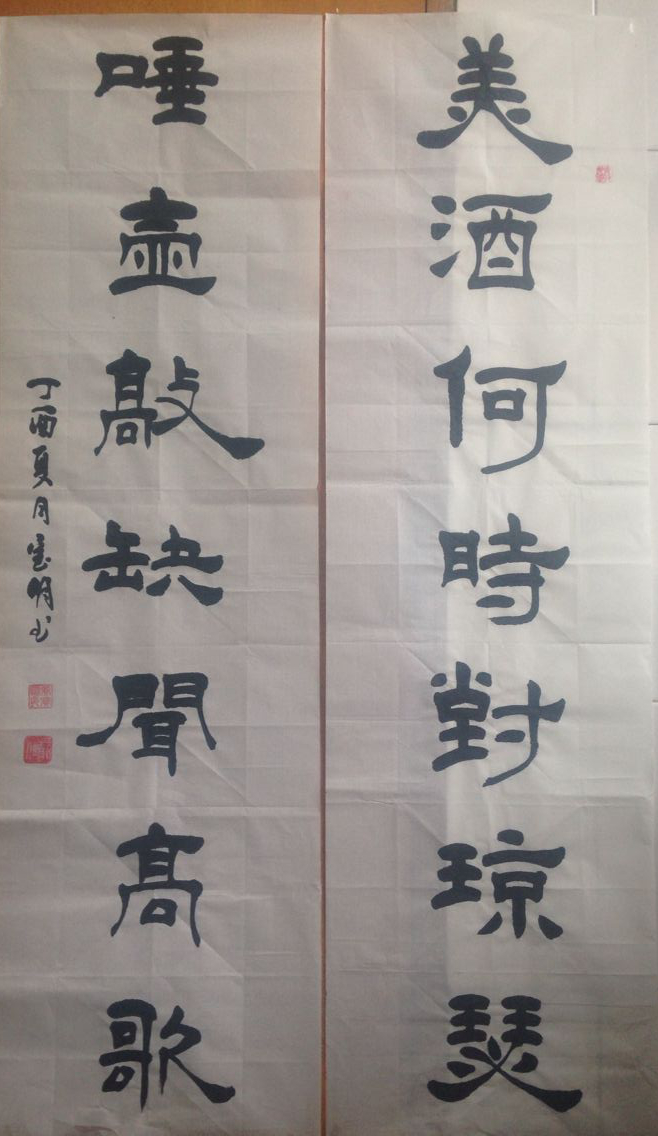 美酒何時對琼瑟
唾壺敲缺聞高歌
丁酉夏月寔明书